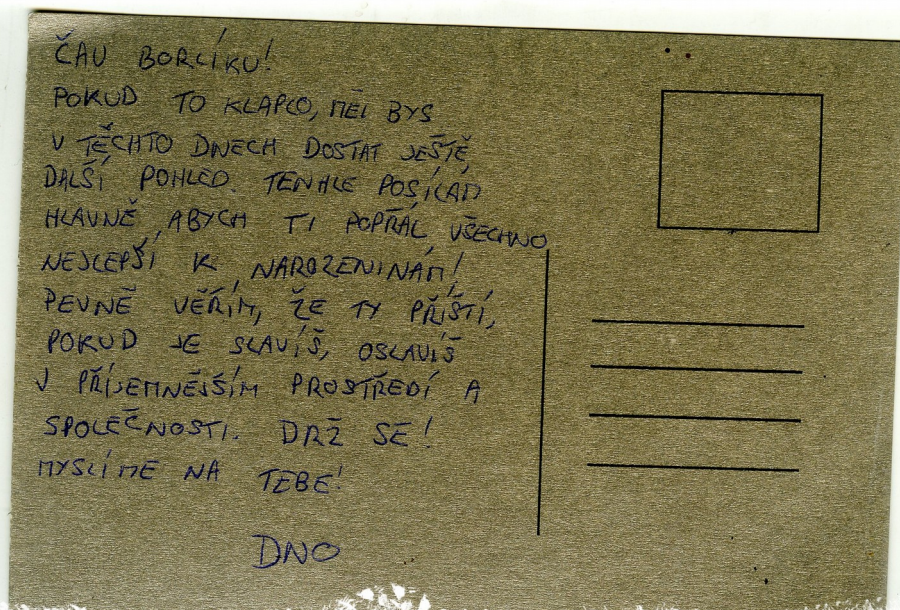 ČAU BORCÍKU!
POKUD TO KLAPLO, MĚL BYS
V TĚCHTO DNECH DOSTAT JEŠTĚ
DALŠÍ POHLED. TENHLE POSÍLÁM
HLAVNĚ, ABYCH TI POPŘÁL VŠECHNO
NEJLEPŠÍ K NAROZENINÁM!
PEVNĚ VĚŘÍM, ŽE TY PŘÍŠTÍ,
POKUD JE SLAVÍŠ, OSLAVÍŠ
V PŘÍJEMNĚJŠÍM PROSTŘEDÍ A
SPOLEČNOSTI. DRŽ SE!
MYSLÍME NA TEBE!
DNO